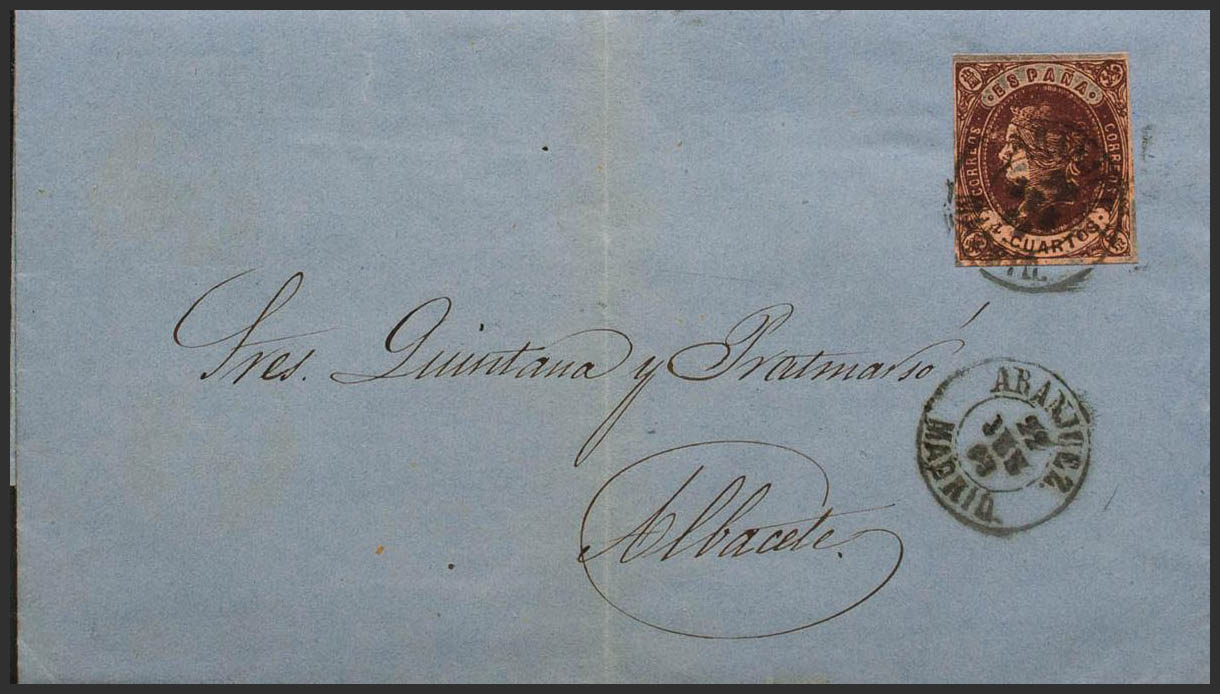 ESPAÑA
CORREOS
CORREOS
4 CUARTOS.
Sres. Quintana y Pratmarsó
Albacete.
ARANJUEZ.
MADRID.